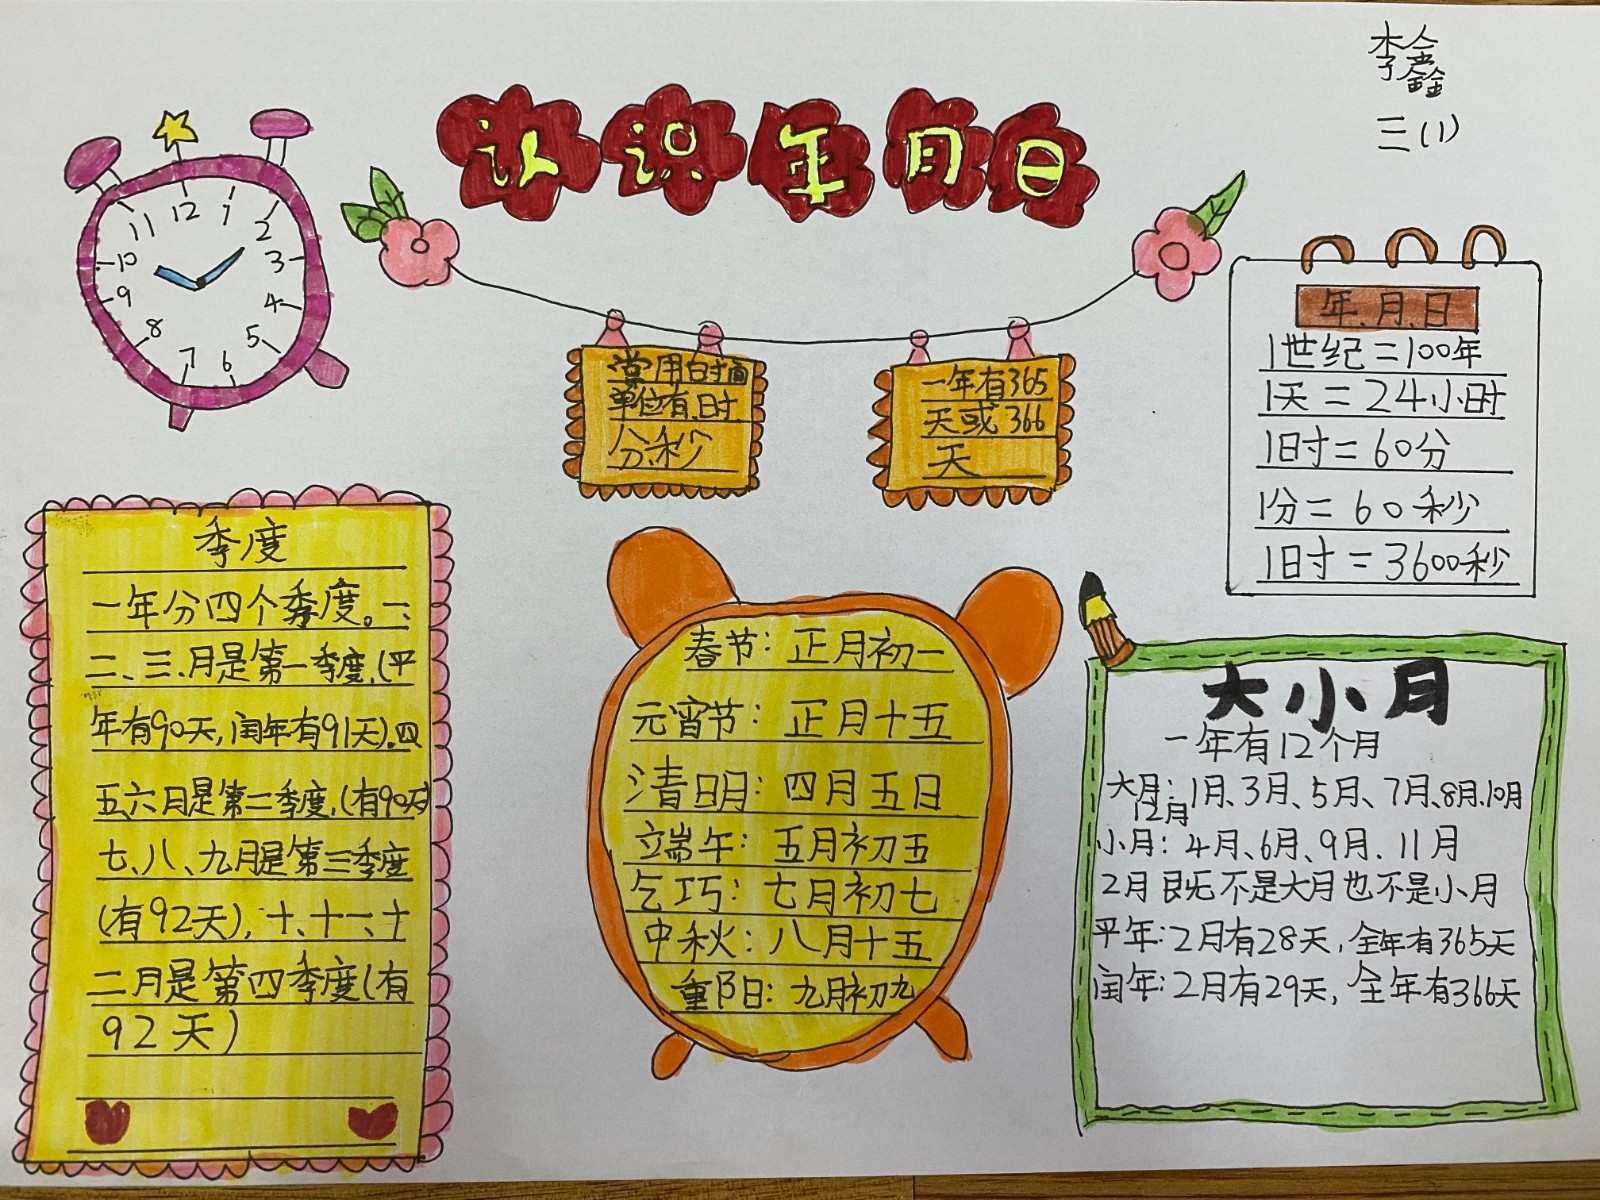 李鑫
三(1)
认识年月日
11 12 1 2 3 4 5 6 7 8 9 10
常用的时间
单位有.时
分.秒
一年有365
天或366
天
年.月.日
1世纪=100年
1天=24小时
1时=60分
1分=60秒
1时=3600秒
季度
一年分四个季度。一、
二、三.月是第一季度,(平
年有90天,闰年有91天).四
五六月是第二季度,(有90天)
七、八、九月是第三季度
(有92天),十、十一、十
二月是第四季度(有
92天)
春节:正月初一
元宵节:正月十五
清明:四月五日
端午:五月初五
乞巧:七月初七
中秋:八月十五
重阳日:九月初九
大小月
一年有12个月
大月:1月、3月、5月、7月、8月、10月
12月
小月:4月、6月、9月.11月
2月既不是大月也不是小月
平年:2月有28天,全年有365天
闰年:2月有29天,全年有366天